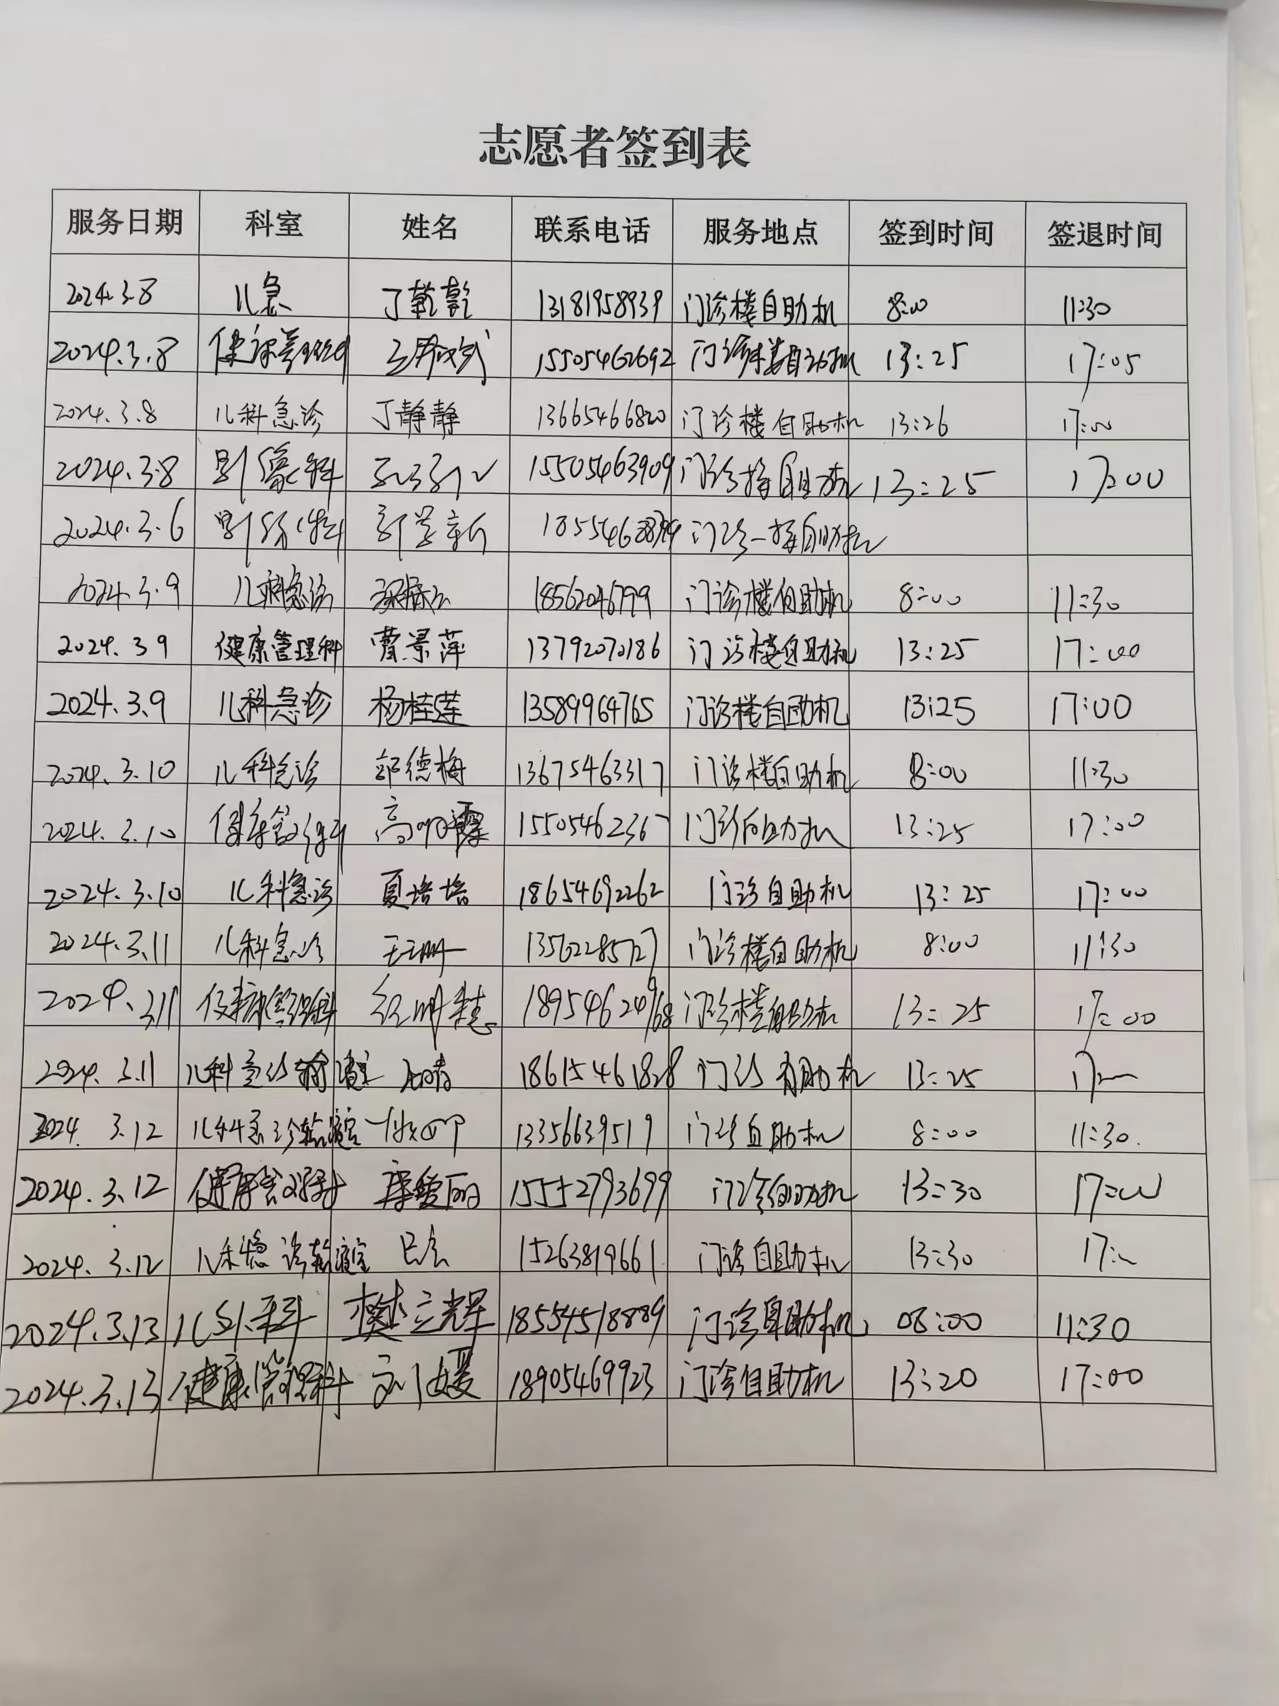 志愿者签到表
服务日期 科室 姓名 联系电话 服务地点 签到时间 签退时间
2024.3.8 儿急 丁乾乾 13181958939 门诊楼自助机 8:00 11:30
2024.3.8 健康管理科 15505462692 门诊楼自助机 13:25 17:05
2024.3.8 儿科急诊 丁静静 13665466820 门诊楼自助机 13:26 17:00
2024.3.8 影像科 15505463909 门诊楼自助机 13:25 17:00
2024.3.6 影像科 门诊一楼自助机
2024.3.9 儿科急诊 18562046799 门诊楼自助机 8:00 11:30
2024.3.9 健康管理科 曹景萍 13792070186 门诊楼自助机 13:25 17:00
2024.3.9 儿科急诊 杨桂莲 13589964765 门诊楼自助机 13:25 17:00
2024.3.10 儿科急诊 郭德梅 13675463317 门诊楼自助机 8:00 11:30
2024.3.10 健康管理科 高明霞 15505462367 门诊自助机 13:25 17:00
2024.3.10 儿科急诊 夏培培 18654692262 门诊自助机 13:25 17:00
2024.3.11 儿科急诊 王珊 13562285727 门诊楼自助机 8:00 11:30
2024.3.11 健康管理科 18954624968 门诊楼自助机 13:25 17:00
2024.3.11 儿科急诊输液室 18615461828 门诊自助机 13:25 17:00
2024.3.12 儿科急诊输液室 13356639519 门诊自助机 8:00 11:30.
2024.3.12 健康管理科 15552793699 门诊自助机 13:30 17:00
2024.3.12 儿科急诊输液室 15263819661 门诊自助机 13:30 17:00
2024.3.13 儿外科 樊立辉 18554518889 门诊自助机 08:00 11:30
2024.3.13 健康管理科 刘媛 18905469923 门诊自助机 13:20 17:00